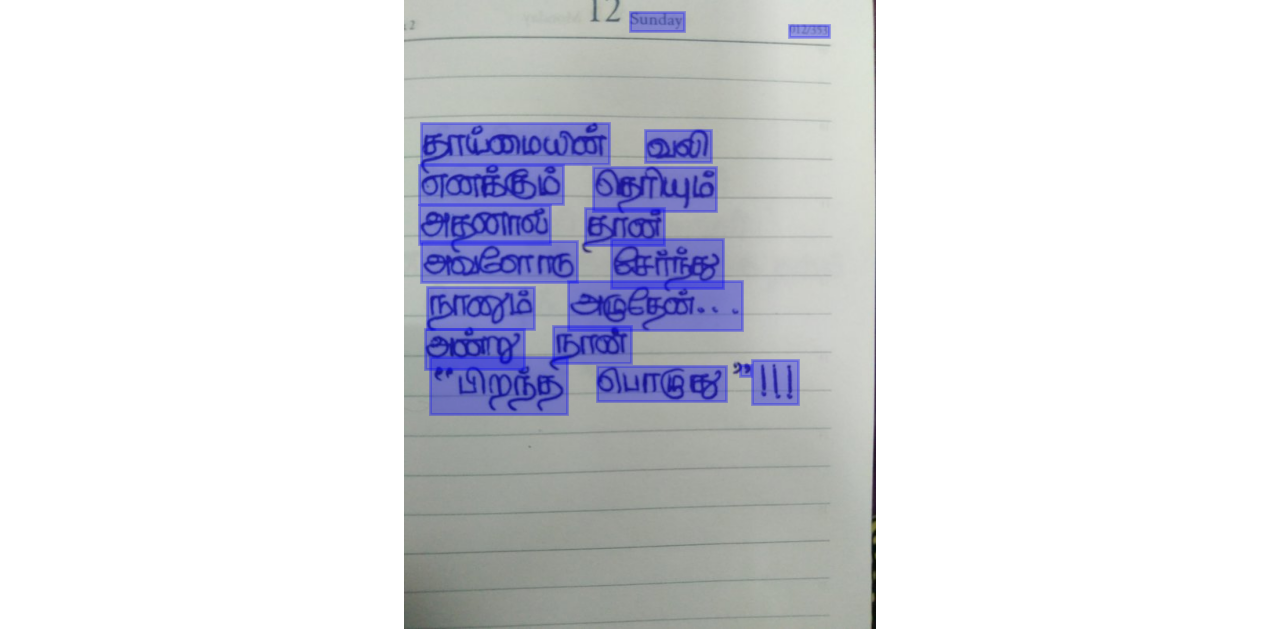 12 Sunday
012/353
தாய்மையின் வலி
எனக்கும் தெரியும்
அதனால் தான்
அவளோடு சேர்ந்து
நானும் அழுதேன்...
அன்று நான்
"பிறந்த பொழுது"!!!